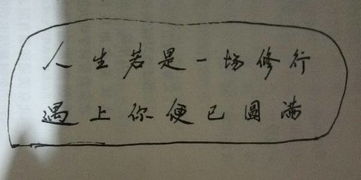 人生若是一场修行
遇上你便已圆满